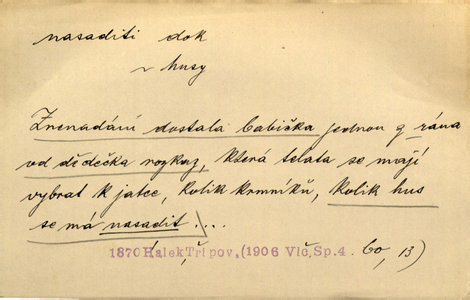 nasaditi dok
~ husy
Znenadání dostala babička jednou z rána
od dědečka rozkaz, která telata se mají
vybrat k jatce, kolik krmníků, kolik hus
se má nasadit....
1870 Halek Tri pov. (1906 Vlč, Sp. 4. 60, 13)